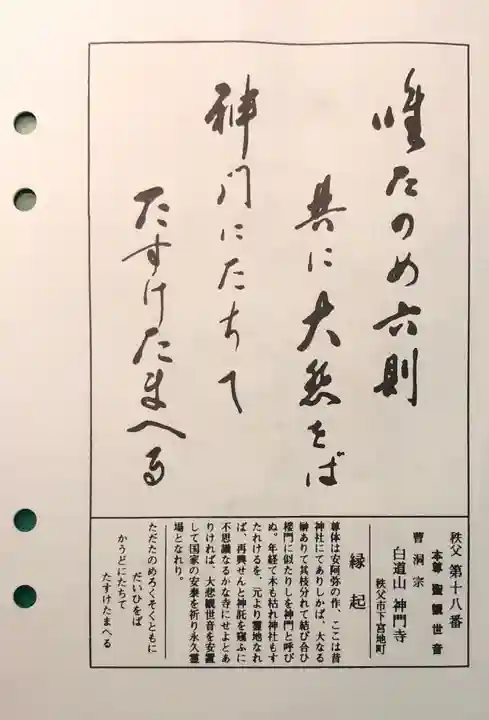 唯たのめ六則
共に大悲をば
神門にたちて
たすけたまへる
秩父 第十八番
本尊 聖観世音
曹洞宗
白道山 神門寺
秩父市下宮地町
縁起
尊体は安阿弥の作、ここは昔
神社にてありしかば、大なる
榊ありて其枝分れて結び合ひ
楼門に似たりしを神門と呼び
ぬ。年経て木も枯れ神社もす
たれけるを、元より霊地なれ
ば、再興せんと神託を窺ふに
不思議なるかな寺にせよとあ
りければ、大悲観世音を安置
して国家の安泰を祈り永久霊
場となれり。
ただたのめろくそくともに
だいひをば
かうどにたちて
たすけたまへる